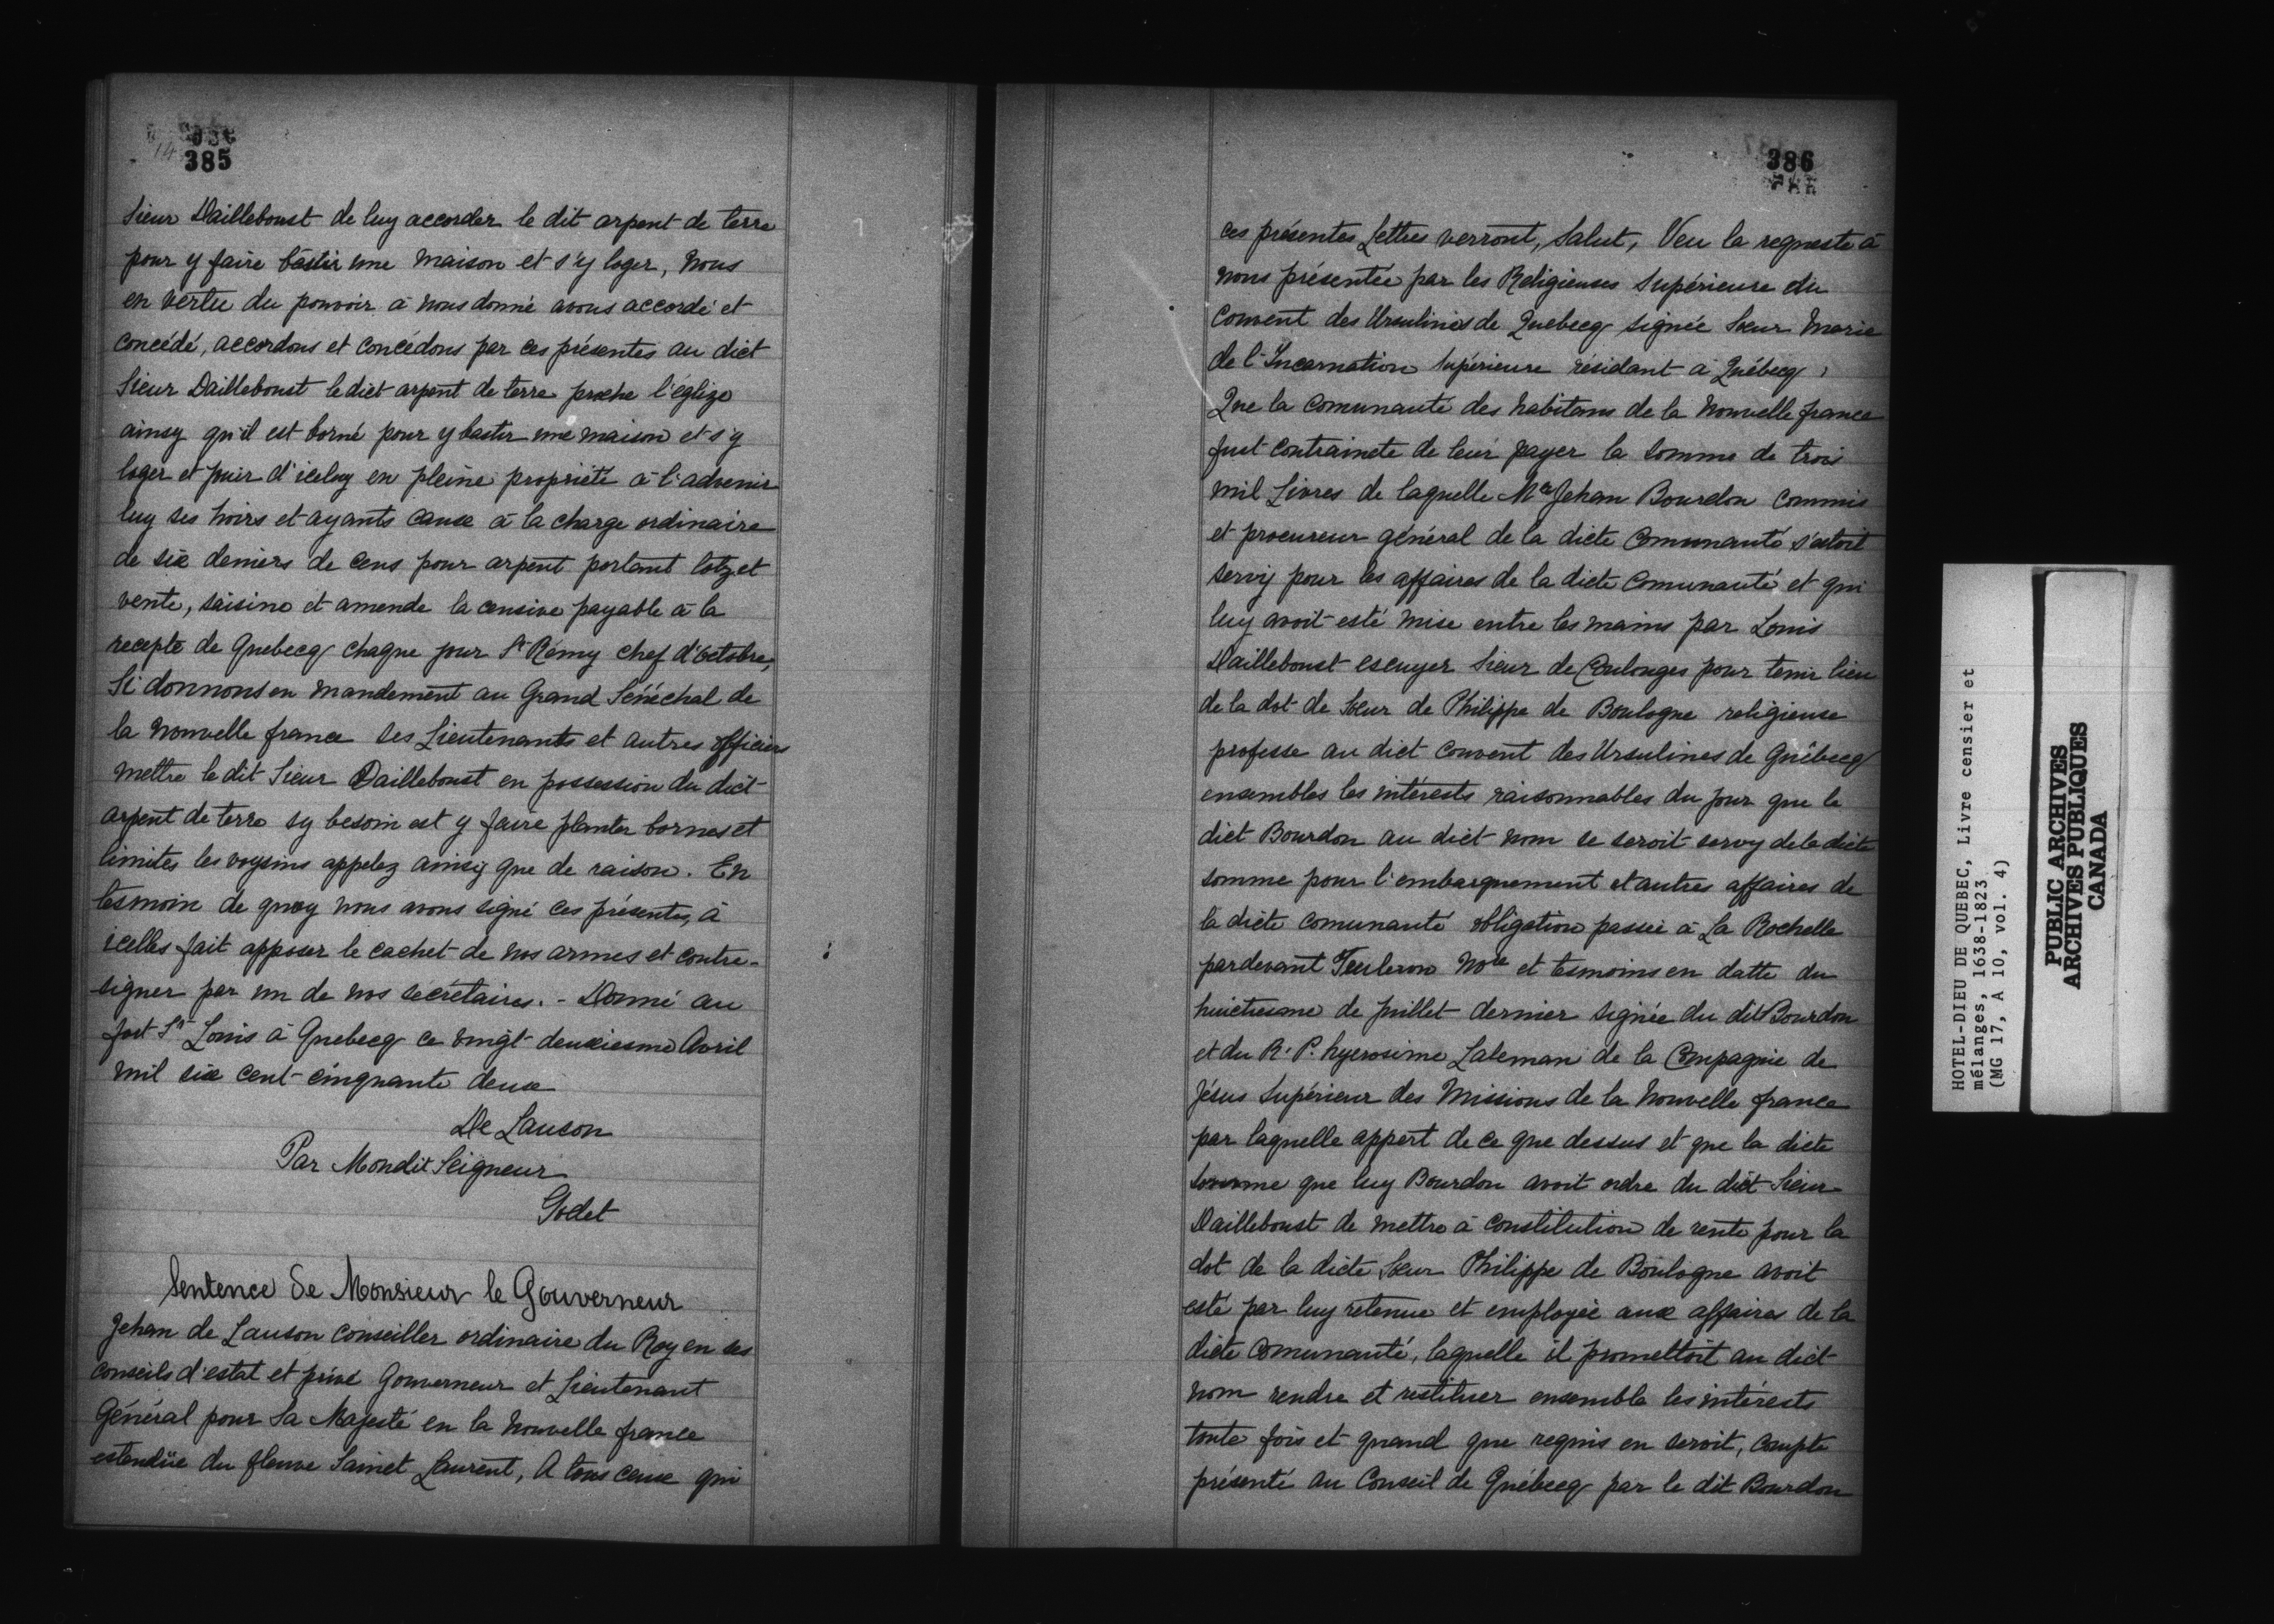 385
Sieur Dailleboust de luy accorder le dit arpent de terre
pour y faire bastir une maison et s'y loger, nous
en vertu du pouvoir à nous donné avons accordé et
concédé, accordons et concédons par ces présentes au dict
Sieur Dailleboust le dict arpent de terre proche l'églize
ainsy qu'il est borné pour y bastir une maison et s'y
loger et jouir d'iceluy en pleine propriété à l'advenir
luy ses hoirs et ayants cause à la charge ordinaire
de six deniers de cens pour arpent portant lotz et
vente, saisine et amende la censive payable à la
recepte de Quebecq chaque jour St Rémy chef d'octobre,
Si donnons en mandement au Grand Sénéchal de
la Nouvelle france ses Lieutenants et autres officiers
mettre le dit Sieur Dailleboust en possession du dict
arpent de terre sy besoin est y faire planter bornes et
limites les voysins appelez ainsy que de raison. En
tesmoin de quoy nous avons signé ces présentes, à
icelles fait apposer le cachet de nos armes et contre-
signer par un de nos secrétaires. - Donné au
fort St Louis à Quebecq ce vingt deuxiesme Avril
mil six cent cinquante deux
De Lauson
Par Mondit Seigneur
Godet
Sentence de Monsieur le Gouverneur
Jehan de Lauson conseiller ordinaire du Roy en ses
conseils d'estat et privé Gouverneur et Lieutenant
Général pour Sa Majesté en la Nouvelle france
estendüe du fleuve Sainct Laurent, A tous ceux qui
386
ces présentes Lettres verront, Salut, Veu la requeste à
nous présentée par les Religieuses Supérieure du
Convent des Ursulines de Quebecq signée Sœur Marie
de l'Incarnation Supérieure résidant à Québecq,
Que la comunauté des habitans de la Nouvelle france
fust contraincte de leur payer la somme de trois
mil Livres de laquelle Me Jehan Bourdon commis
et procureur général de la dicte Comunauté s'estoit
servy pour les affaires de la dicte Comunauté et qui
luy avoit esté mise entre les mains par Louis
Dailleboust escuyer Sieur de Coulonges pour tenir lieu
de la dot de Sœur de Philippe de Boulogne religieuse
professe au dict Convent des Ursulines de Québecq
ensembles les intérests raisonnables du jour que le
dict Bourdon au dict nom se seroit servy de la dicte
somme pour l'embarquement et autres affaires de
la dicte comunauté obligation passée à La Rochelle
pardevant Teuleron Nore et tesmoins en datte du
huictiesme de juillet dernier signée du dit Bourdon
et du R. P. hyerosime Laleman de la Compagnie de
Jésus Supérieur des Missions de la Nouvelle france
par laquelle appert de ce que dessus et que la dicte
somme que luy Bourdon avoit ordre du dict Sieur
Dailleboust de mettre à constitution de rente pour la
dot de la dicte Sœur Philippe de Boulogne avoit
esté par luy retenue et employée aux affaires de la
dicte comunauté, laquelle il promettoit au dict
nom rendre et restituer ensemble les intérests
toute fois et quand que requis en seroit, compte
présenté au Conseil de Québecq par le dit Bourdon
HOTEL-DIEU DE QUEBEC, Livre censier et
mélanges, 1638-1823
(MG 17, A 10, vol. 4)
PUBLIC ARCHIVES
ARCHIVES PUBLIQUES
CANADA